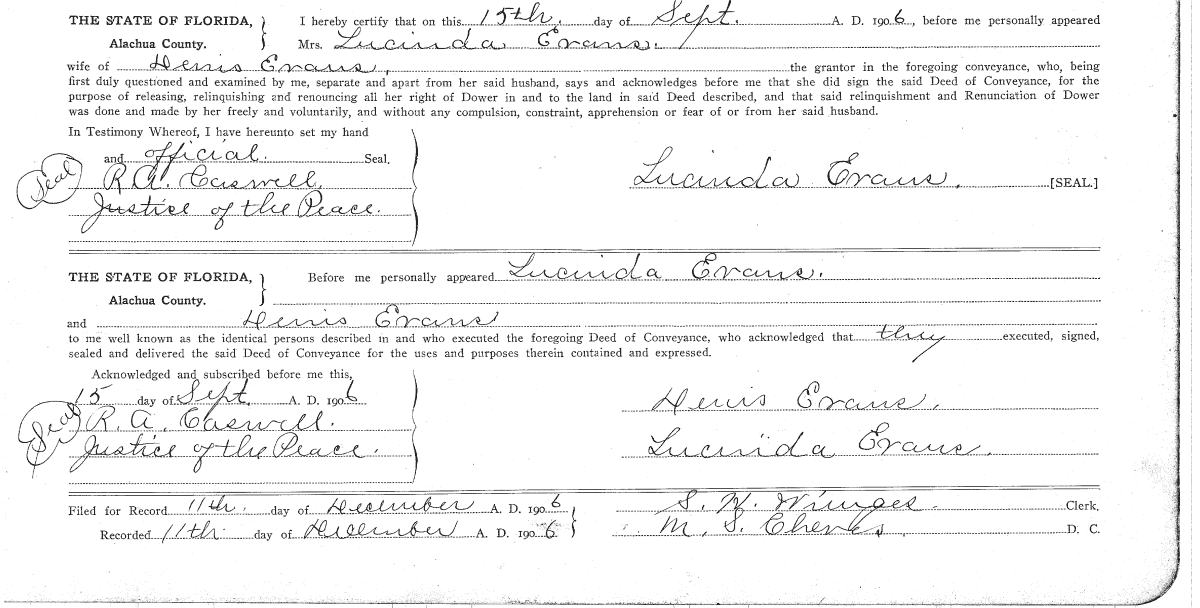 THE STATE OF FLORIDA, I hereby certify that on this 15th. day of Sept. A. D. 1906, before me personally appeared
Alachua County. Mrs. Lucinda Evans.
wife of Denis Evans, the grantor in the foregoing conveyance, who, being
first duly questioned and examined by me, separate and apart from her said husband, says and acknowledges before me that she did sign the said Deed of Conveyance, for the
purpose of releasing, relinquishing and renouncing all her right of Dower in and to the land in said Deed described, and that said relinquishment and Renunciation of Dower
was done and made by her freely and voluntarily, and without any compulsion, constraint, apprehension or fear of or from her said husband.
In Testimony Whereof, I have hereunto set my hand
and official. Seal.
Seal R. A. Caswell, Lucinda Evans. [SEAL.]
Justice of the Peace.
THE STATE OF FLORIDA, Before me personally appeared Lucinda Evans.
Alachua County.
and Denis Evans
to me well known as the identical persons described in and who executed the foregoing Deed of Conveyance, who acknowledged that they executed, signed,
sealed and delivered the said Deed of Conveyance for the uses and purposes therein contained and expressed.
Acknowledged and subscribed before me this,
15 day of Sept. A. D. 1906 Denis Evans.
Seal R. A. Caswell.
Justice of the Peace. Lucinda Evans.
Filed for Record 11th. day of December A. D. 1906 S. H. Wienges. Clerk.
Recorded 11th day of December A. D. 1906. M. S. Cheves, D. C.